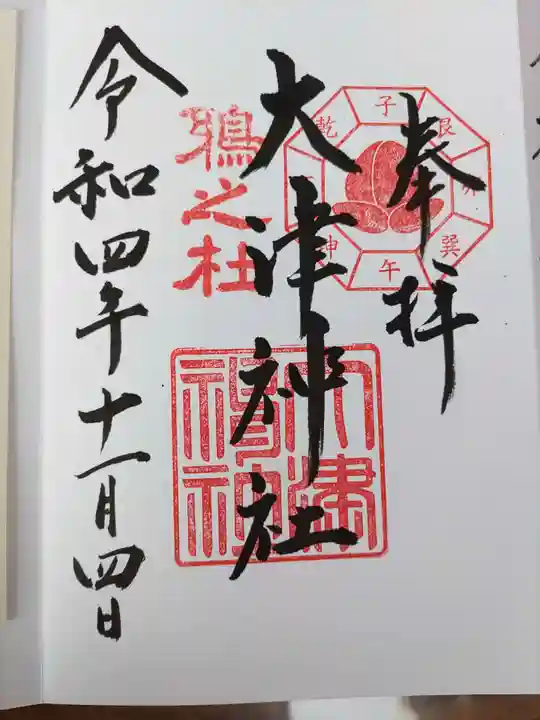 奉拝
子
艮
巽
午
坤
乾
大津神社
鵶之杜
令和四年十一月四日